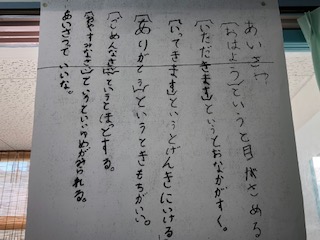 あいさつ
「おはよう」というと目がさめる
「いただきます」というとおなかがすく。
「いってきます」というとげんきにいける
「ありがとう」というときもちがいい。
「ごめんなさい」というとほっとする。
「おやすみなさい」というといいゆめがみられる。
あいさつっていいな。